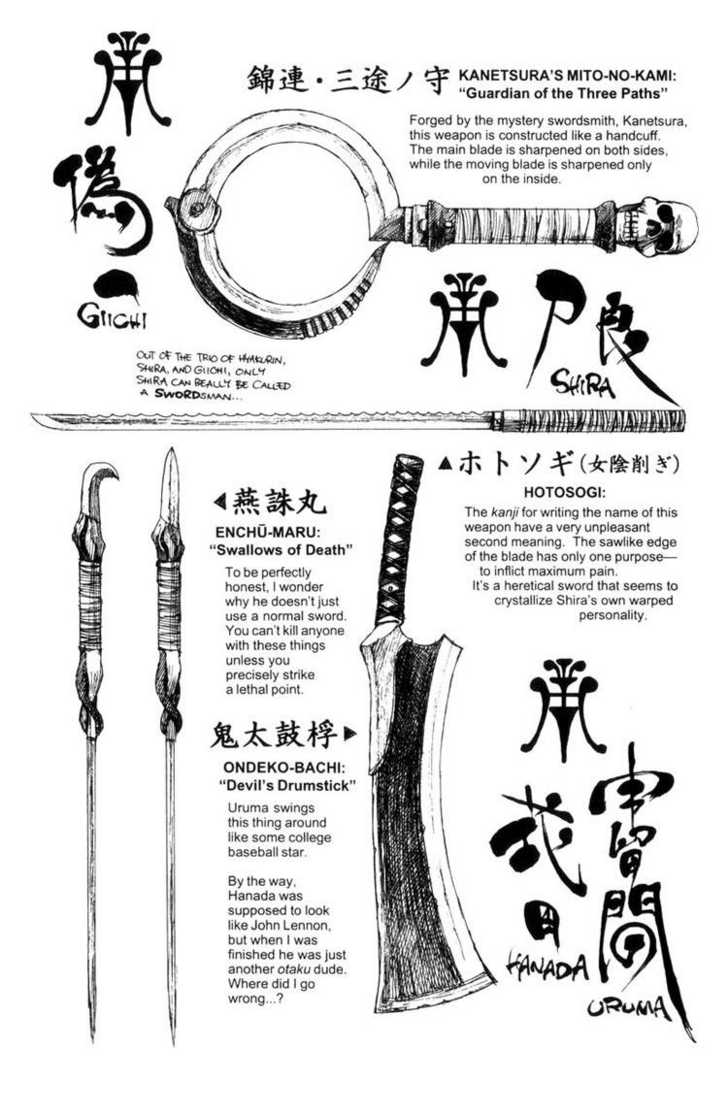 錦連・三途ノ守
KANETSURA'S MITO-NO-KAMI:
"Guardian of the Three Paths"
Forged by the mystery swordsmith, Kanetsura,
this weapon is constructed like a handcuff.
The main blade is sharpened on both sides,
while the moving blade is sharpened only
on the inside.
偽一
GIICHI
尸良
SHIRA
OUT OF THE TRIO OF HYAKURIN,
SHIRA, AND GIICHI, ONLY
SHIRA CAN REALLY BE CALLED
A SWORDSMAN...
▲ホトソギ(女陰削ぎ)
HOTOSOGI:
The kanji for writing the name of this
weapon have a very unpleasant
second meaning. The sawlike edge
of the blade has only one purpose—
to inflict maximum pain.
It's a heretical sword that seems to
crystallize Shira's own warped
personality.
◀燕誅丸
ENCHŪ-MARU:
"Swallows of Death"
To be perfectly
honest, I wonder
why he doesn't just
use a normal sword.
You can't kill anyone
with these things
unless you
precisely strike
a lethal point.
鬼太鼓桴▶
ONDEKO-BACHI:
"Devil's Drumstick"
Uruma swings
this thing around
like some college
baseball star.
By the way,
Hanada was
supposed to look
like John Lennon,
but when I was
finished he was just
another otaku dude.
Where did I go
wrong...?
花田
HANADA
宇留間
URUMA